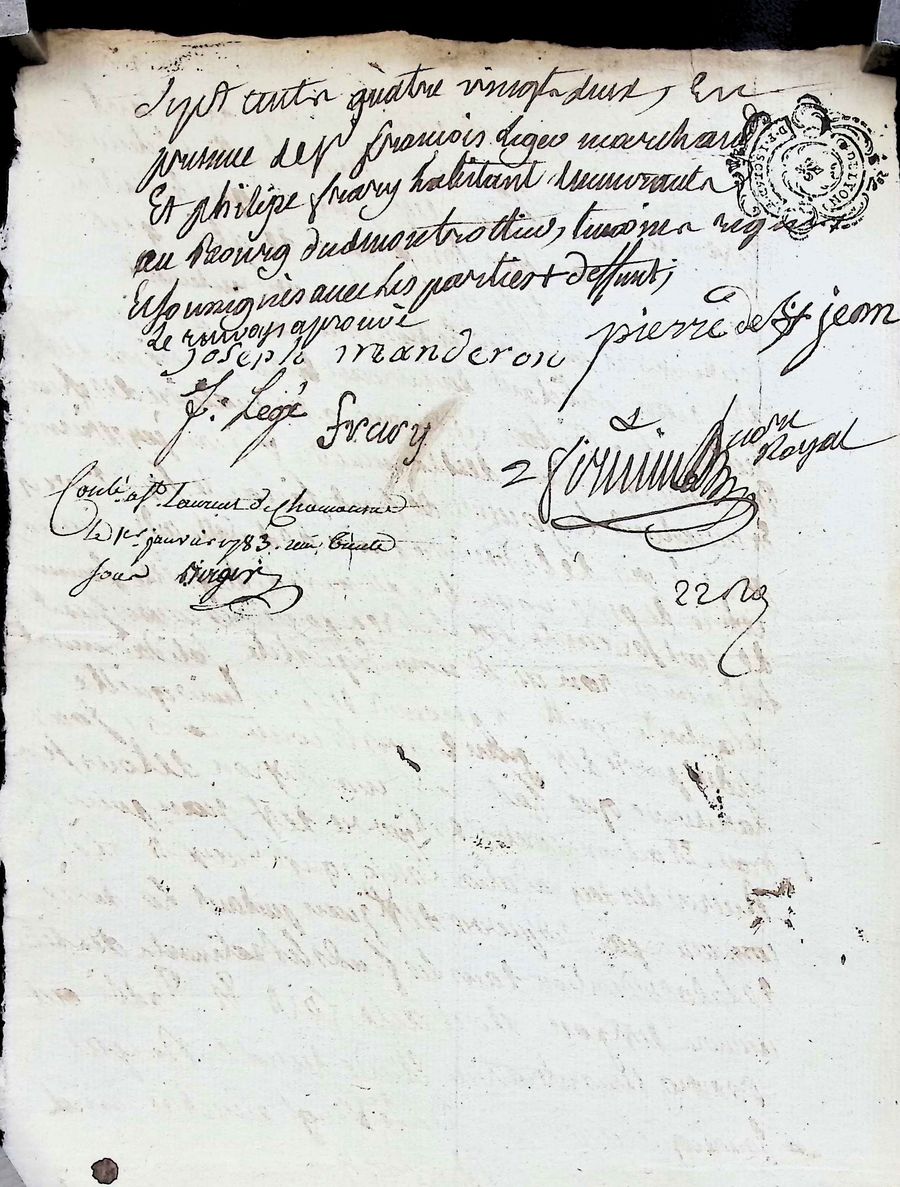 Sept cents quatre vingts deux, En
presence de Sr françois Legeo marchand
Et philipe frary habitant demeurants
au Bourg dudmontrottier, temoins requis
Et soussignés avec les parties + deffunt,
Le renvoys aprouvé
Joseph manderon pierre de St jean
f. Legé
frary
no.re Royal
Conlé. a St. Laurent de Chamousset
Le 1er janvier 1783. reçu trente
sous
22
DE LYON